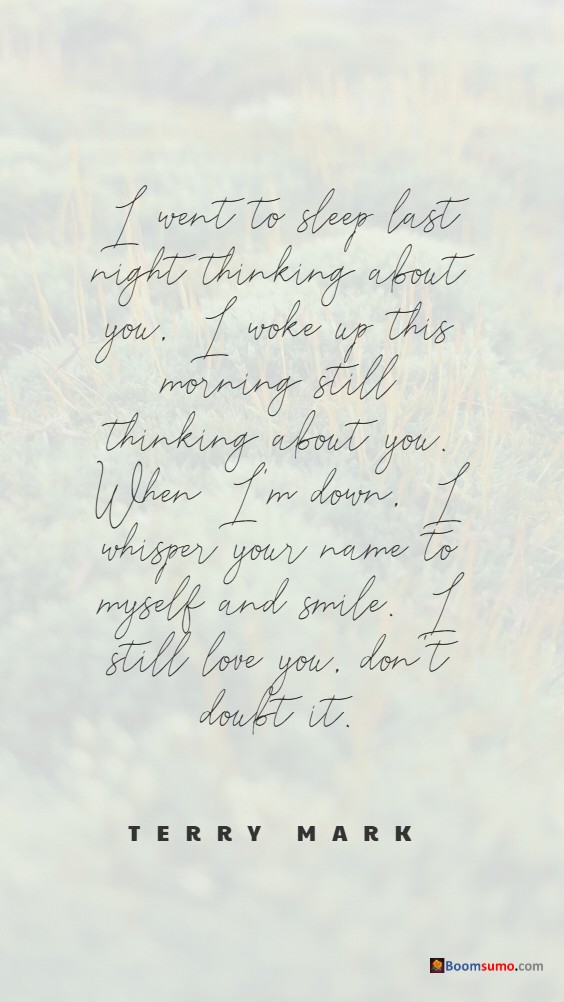 I went to sleep last
night thinking about
you. I woke up this
morning still
thinking about you.
When I'm down, I
whisper your name to
myself and smile. I
still love you, don't
doubt it.
TERRY MARK
Boomsumo.com